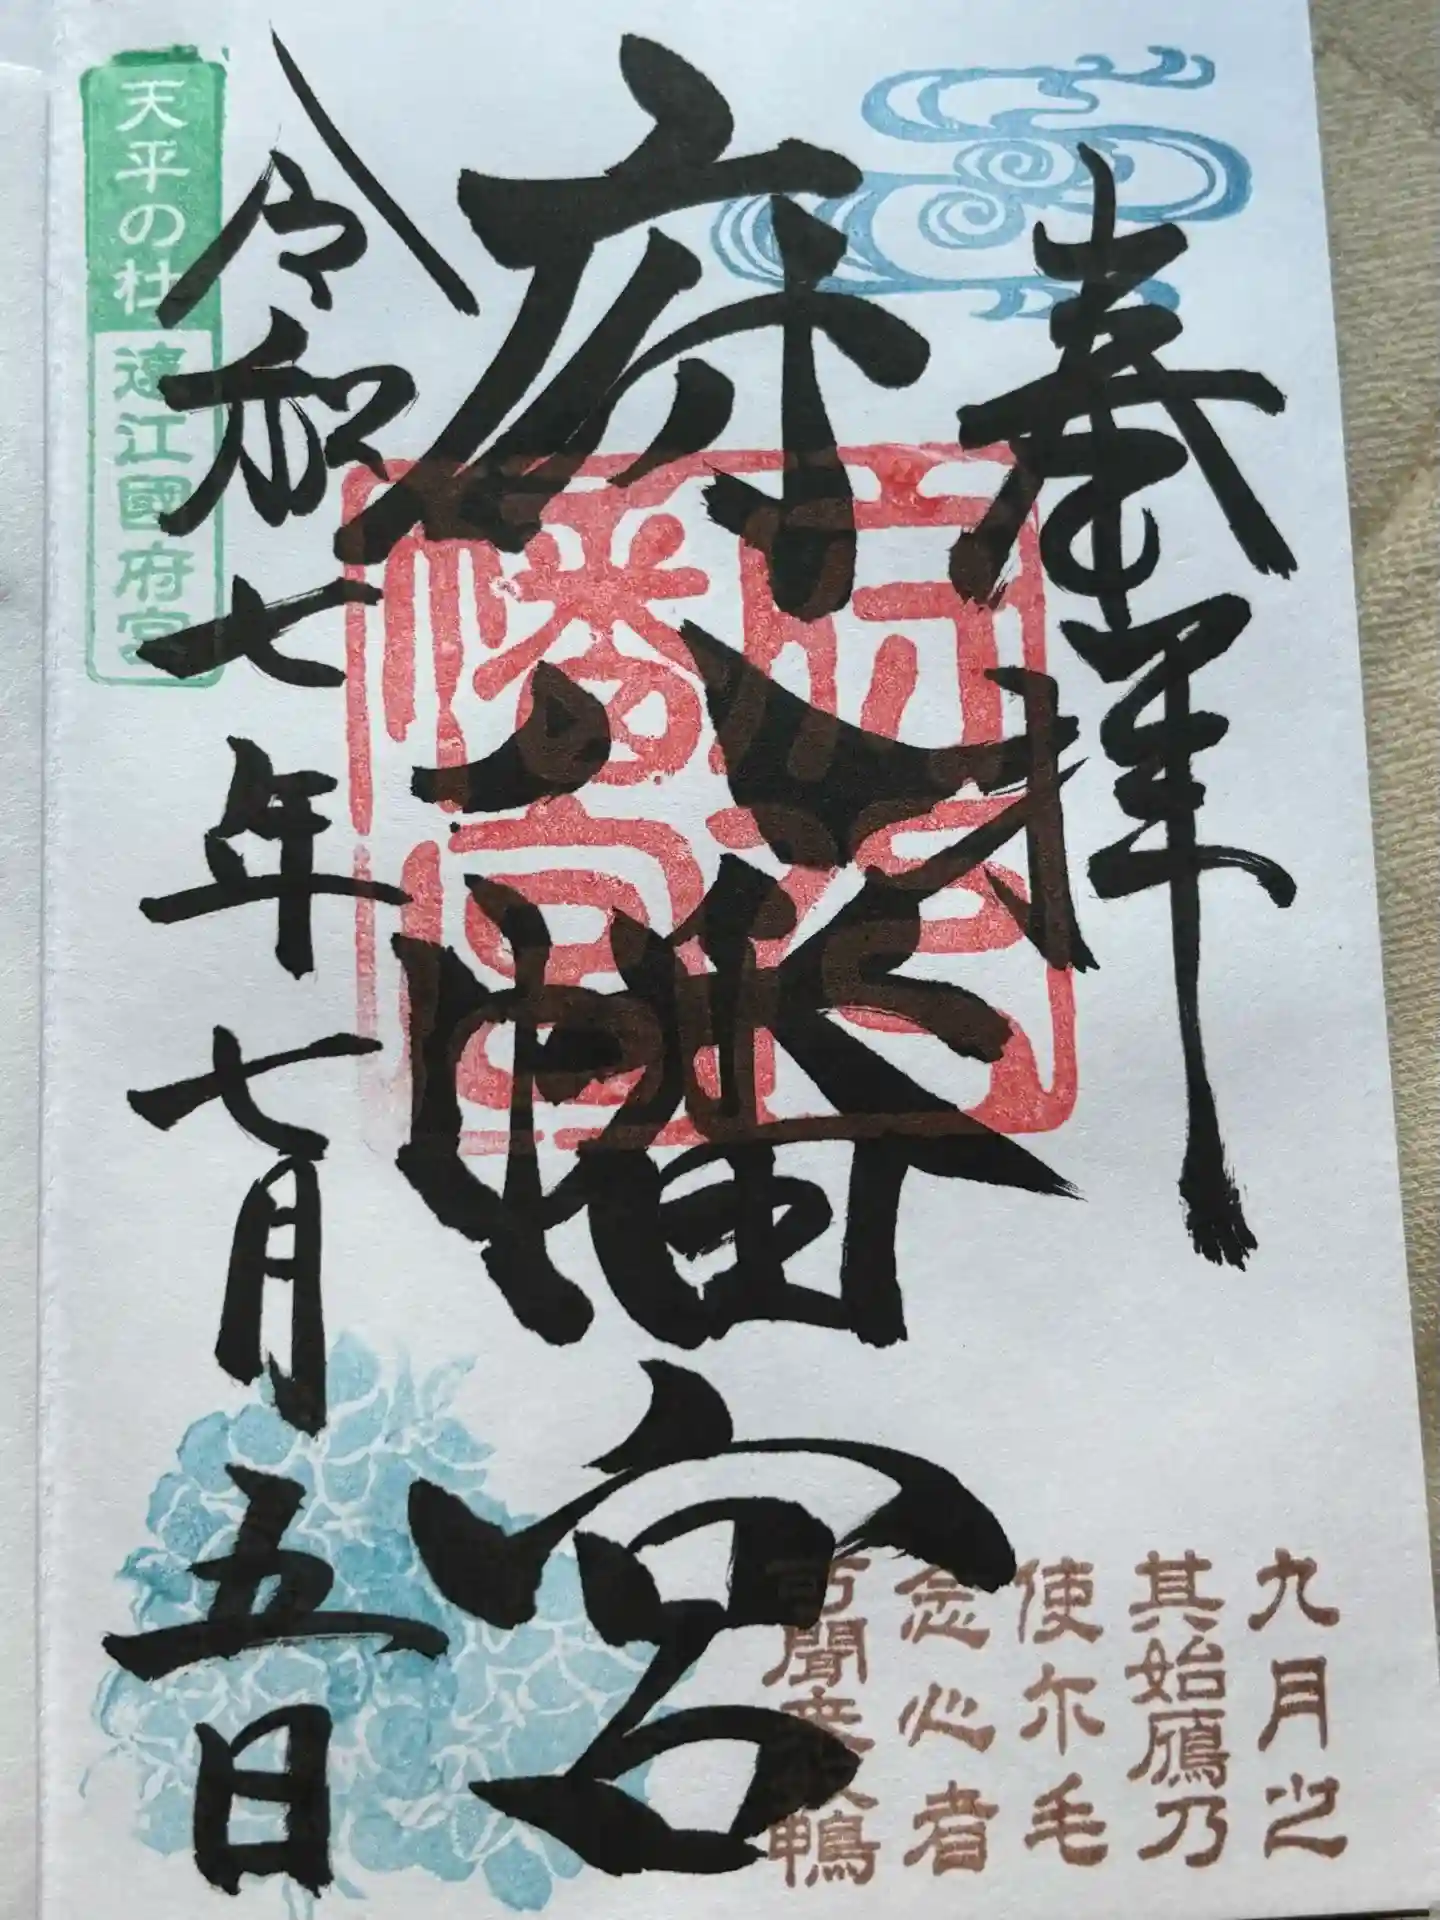 奉拝
府八幡宮
令和七年七月五日
天平の杜 遠江國府宮
府八
幡宮
九月之
其始鴈乃
使尓毛
念心者
可聞来
鴨